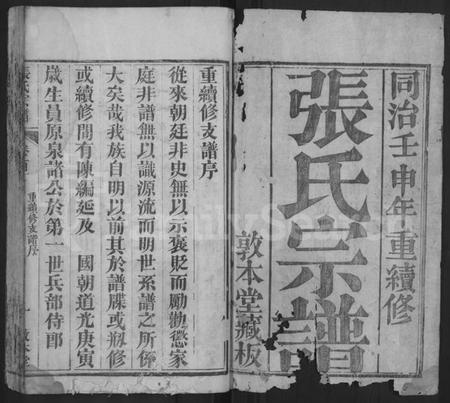 同治壬申年重續修
張氏宗譜
敦本堂藏板
重續修支譜序
從來朝廷非史無以示褒貶而勵勸懲家
庭非譜無以識源流而明世系譜之所係
大矣哉我族自明以前其於譜牒或刱修
或續修間有陳編延及　國朝道光庚寅
歲生員原泉諸公於第一世兵部侍郎
重續修支譜序
FamilySearch